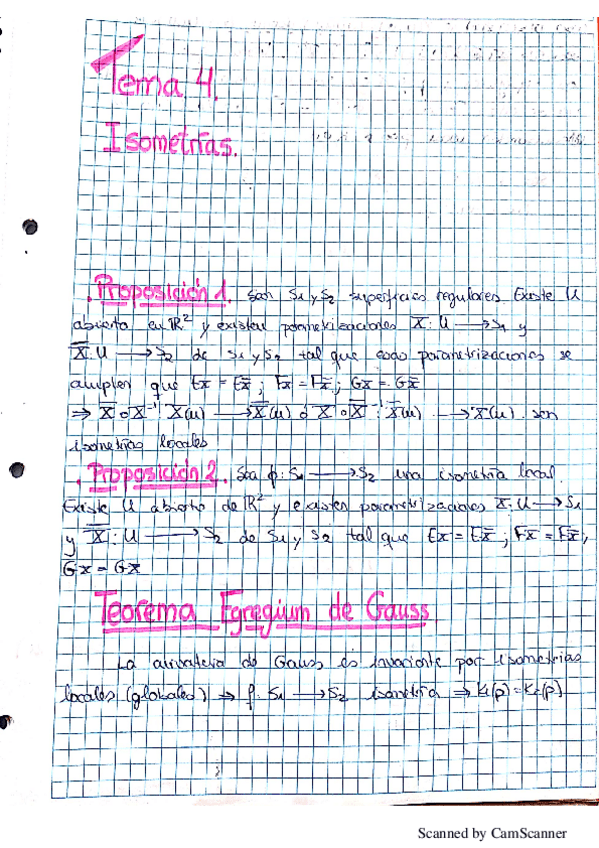 Tema 4.
Isometrías.
. Proposición 1. Sean S₁ y S₂ superficies regulares. Existe U
abierto en ℝ² y existen parametrizaciones X: U ⟶ S₁ y
X̅: U ⟶ S₂ de S₁ y S₂ tal que esas parametrizaciones se
cumplen que Ex = Ex̅ ; Fx = Fx̅ ; Gx = Gx̅
⇒ X̅ ∘ X⁻¹: X(u) ⟶ X̅(u) ó X ∘ X̅⁻¹: X̅(u) ⟶ X(u) son
isometrías locales
. Proposición 2. Sea φ: S₁ ⟶ S₂ una isometría local.
Existe U abierto de ℝ² y existen parametrizaciones X: U ⟶ S₁
y X̅: U ⟶ S₂ de S₁ y S₂ tal que Ex = Ex̅ ; Fx = Fx̅,
Gx = Gx̅
Teorema Egregium de Gauss
La curvatura de Gauss es invariante por isometrías
locales (globales) ⇒ f: S₁ ⟶ S₂ isometría ⇒ K₁(p) = K₂(p)
Scanned by CamScanner